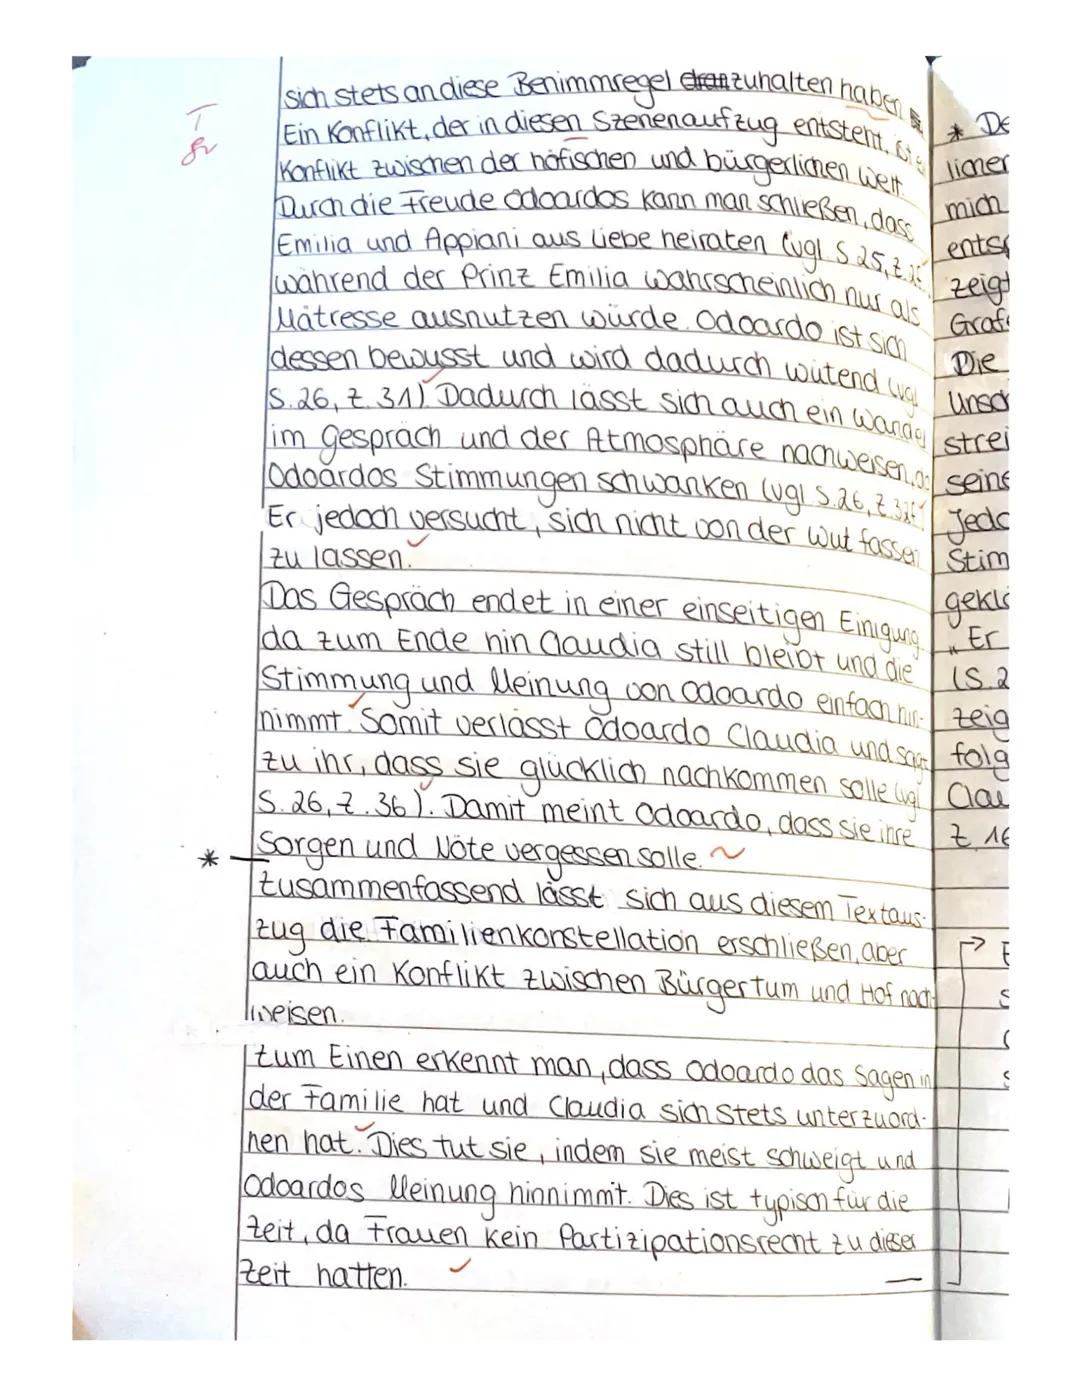 sich stets an diese Benimmregel dran zuhalten haben.
Ein Konflikt, der in diesen Szenenaufzug entsteht, ist
T
Gr
Konflikt zwischen der höfischen und bürgerlichen Welt.
Durch die Freude Odoardos kann man schließen, dass
Emilia und Appiani aus Liebe heiraten (vgl. S.25, Z.
während der Prinz Emilia wahrscheinlich nur als
Mätresse ausnutzen würde. Odoardo ist sich
dessen bewusst und wird dadurch wütend (vgl.
S.26, Z.31). Dadurch lässt sich auch ein Wandel
im Gespräch und der Atmosphäre nachweisen, da
Odoardos Stimmungen schwanken (vgl S.26, Z.32f
Er jedoch versucht, sich nicht von der Wut fassen
zu lassen.
Das Gespräch endet in einer einseitigen Einigung
da zum Ende hin Claudia still bleibt und die
Stimmung und Meinung von Odoardo einfach hin-
nimmt. Somit verlässt Odoardo Claudia und sagt
zu ihr, dass sie glücklich nachkommen solle (vgl
S.26, Z.36). Damit meint Odoardo, dass sie ihre
* Sorgen und Nöte vergessen solle.
Zusammenfassend lässt sich aus diesem Textaus-
zug die Familienkonstellation erschließen, aber
auch ein Konflikt zwischen Bürgertum und Hof nach-
weisen.
Zum Einen erkennt man, dass Odoardo das Sagen in
der Familie hat und Claudia sich stets unterzuord-
nen hat. Dies tut sie, indem sie meist schweigt und
Odoardos Meinung hinnimmt. Dies ist typisch für die
Zeit, da Frauen kein Partizipationsrecht zu dieser
Zeit hatten.
* De
licher
mich
ents
zeigt
Graf
Die
Unsch
strei
seine
Jedo
Stim
geklä
"Er
(S.2
zeig
folg
Clau
Z.16